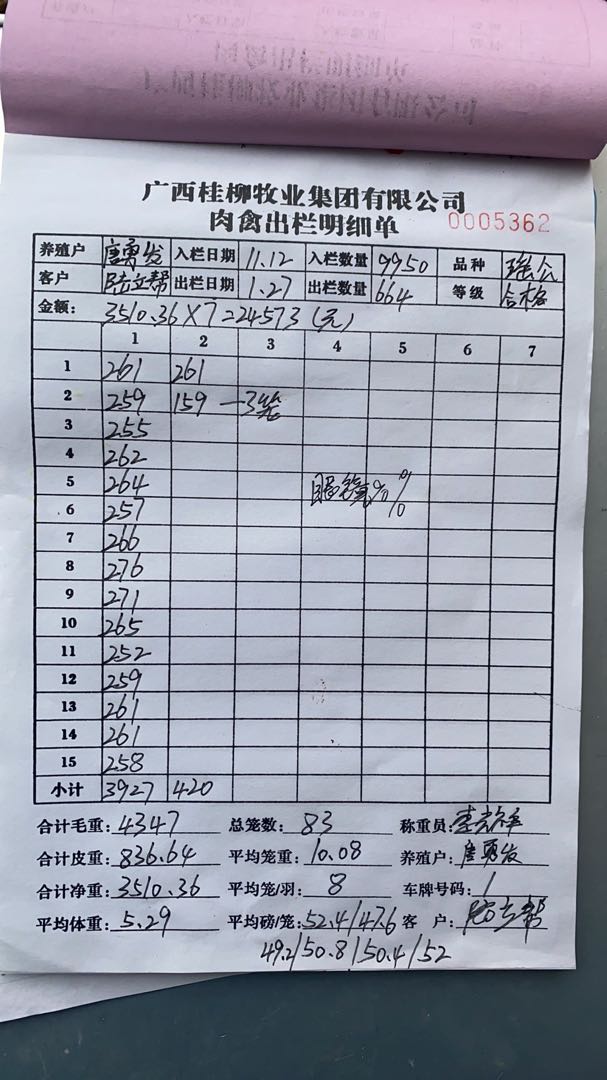 广西桂柳牧业集团有限公司
肉禽出栏明细单 0005362
养殖户 唐勇发 入栏日期 11.12 入栏数量 9950 品种 瑶公
客户 陆立帮 出栏日期 1.27 出栏数量 664 等级 合格
金额: 3510.36×7=24573(元)
1 2 3 4 5 6 7
1 261 261
2 259 159 —3笼
3 255
4 262
5 264
6 257
7 266
8 276
9 271
10 265
11 252
12 259
13 261
14 261
15 258
小计 3927 420
合计毛重: 4347 总笼数: 83 称重员:
合计皮重: 836.64 平均笼重: 10.08 养殖户: 唐勇发
合计净重: 3510.36 平均笼/羽: 8 车牌号码: 1
平均体重: 5.29 平均磅/笼: 52.4/47.6 客 户: 陆立帮
49.2/50.8/50.4/52